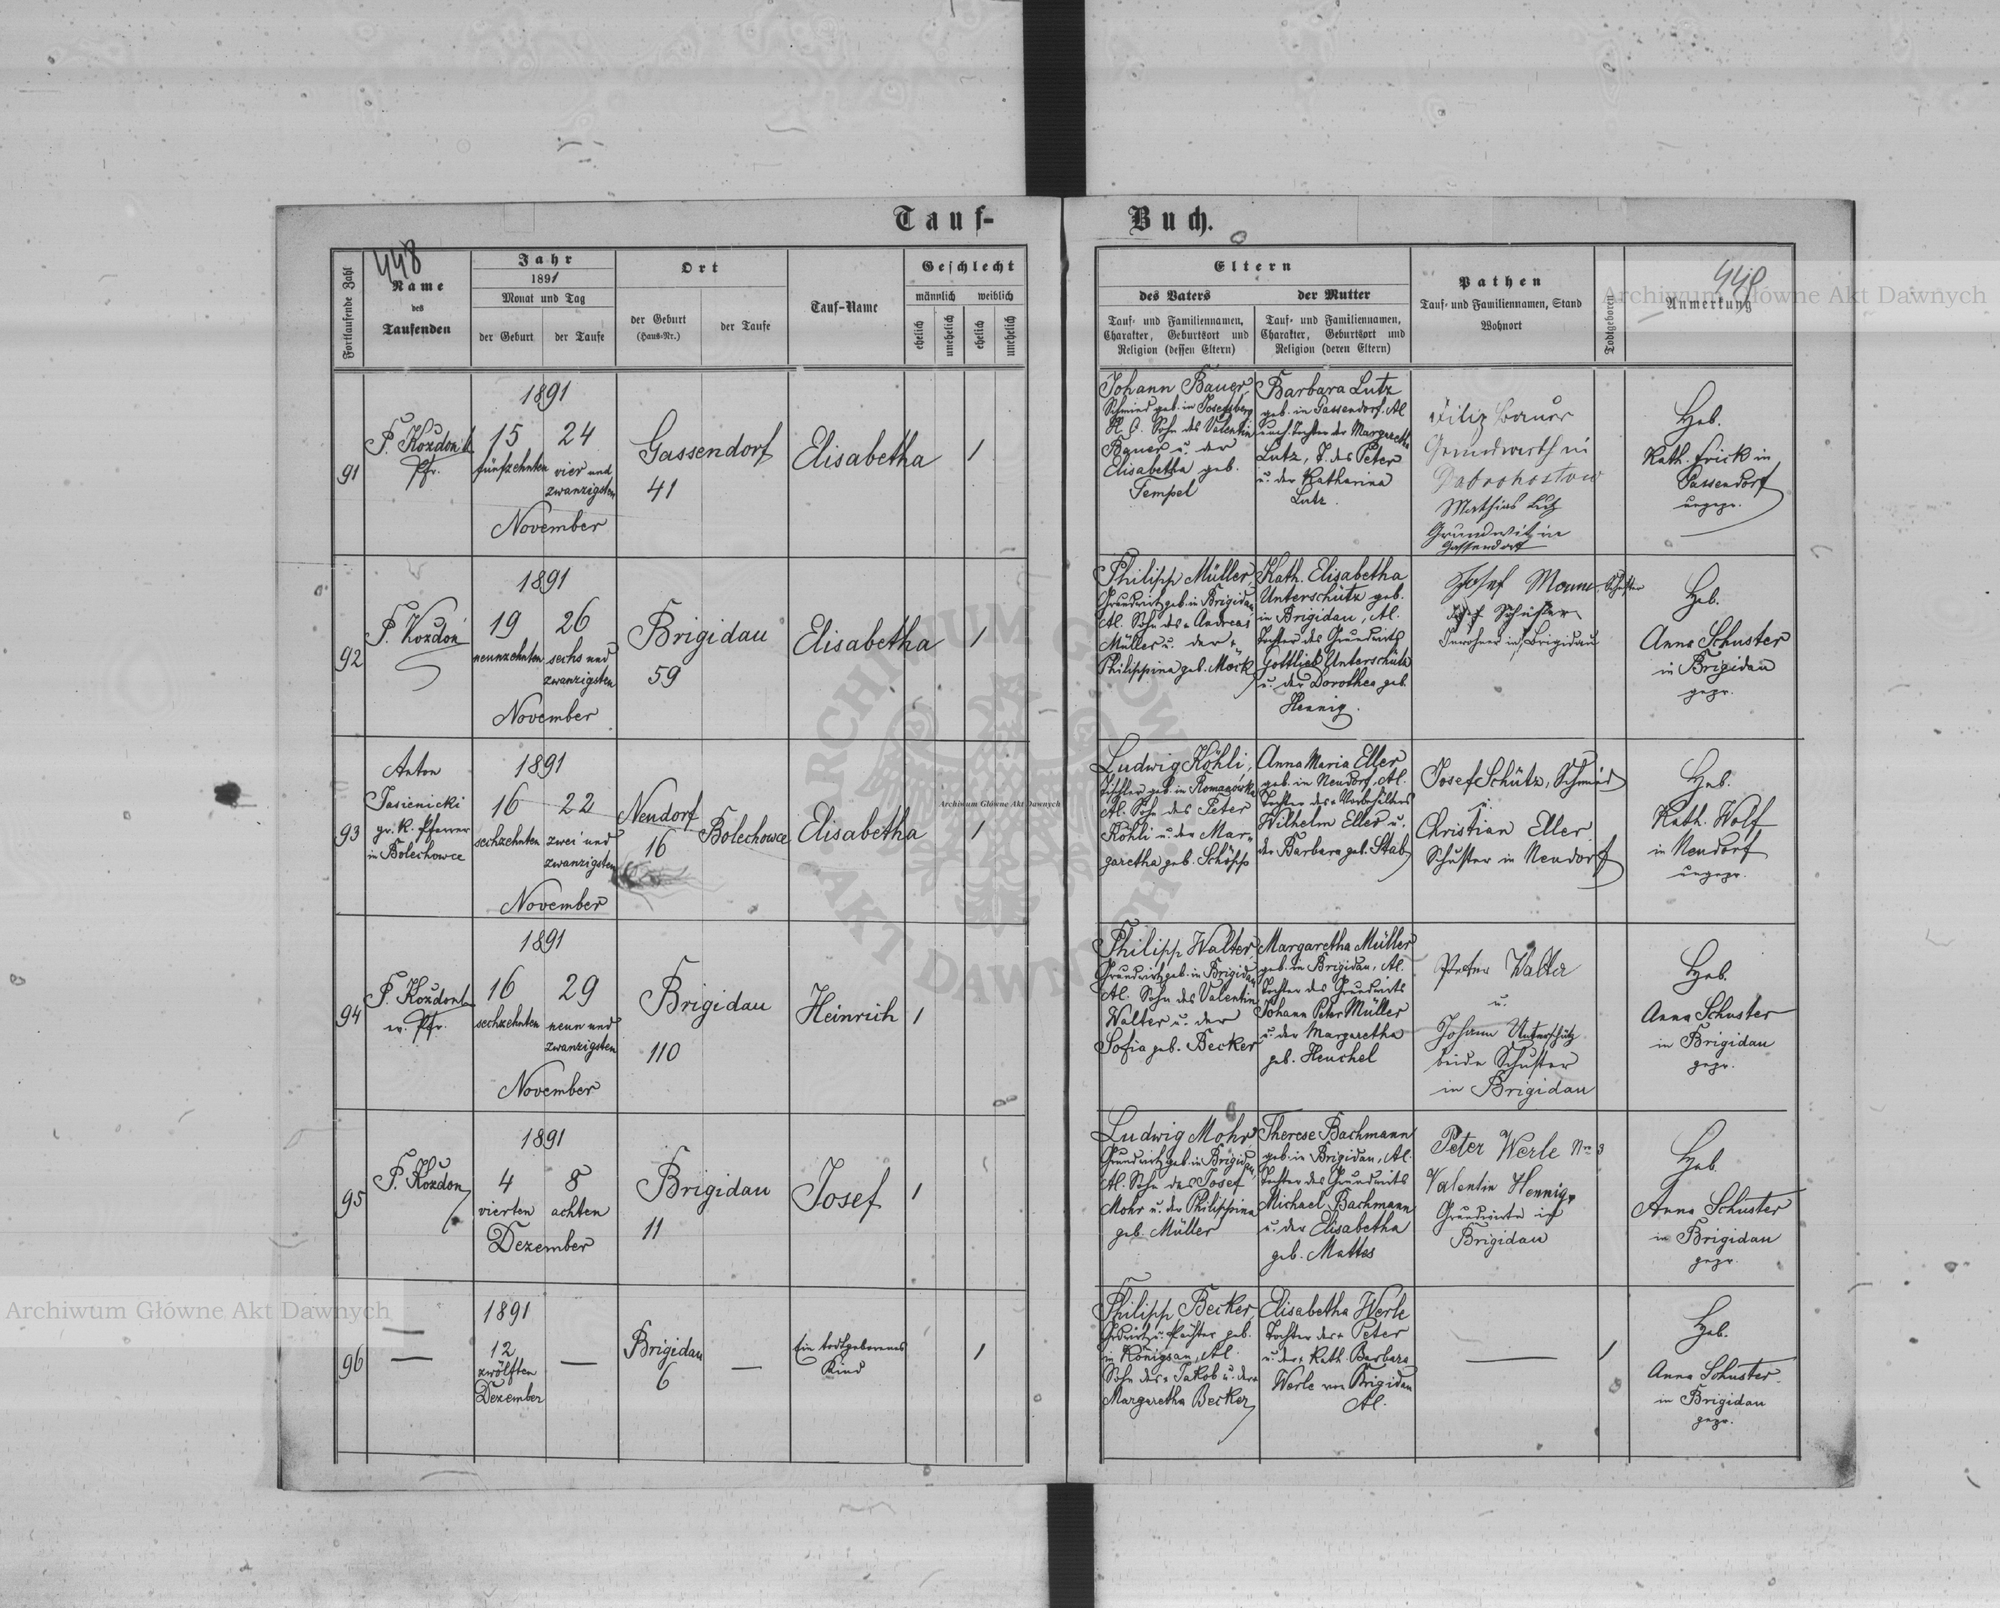 Tauf-
Buch.
448
448
Fortlaufende Zahl
Name
des
Taufenden
Jahr
1891
Monat und Tag
der Geburt
der Taufe
Ort
der Geburt
(Haus-Nr.)
der Taufe
Tauf-Name
Geschlecht
männlich
weiblich
ehelich
unehelich
ehelich
unehelich
Eltern
des Vaters
Tauf- und Familiennamen,
Charakter, Geburtsort und
Religion (dessen Eltern)
der Mutter
Tauf- und Familiennamen,
Charakter, Geburtsort und
Religion (deren Eltern)
Pathen
Tauf- und Familiennamen, Stand
Wohnort
Todtgeboren
Anmerkung
91
Pfr.
1891
15
fünfzehnten
24
vier und
zwanzigsten
November
Gassendorf
41
Elisabetha
1
Johann Bauer
Schmied geb. in Josefsberg
Sohn des Valentin
Bauer u. der
Elisabetha geb.
Tempel
Barbara Lutz
geb. in Gassendorf, Al.
Tochter der Margaretha
Lutz, T. des Peter
u. der Katharina
Lutz.
Filip Bauer
Grundwirth in
Dabrohostow
Mathias Lutz
Grundwirt in
Gassendorf
Heb.
Kath. Frick in
Gassendorf
ungepr.
92
P. Kozdoń
1891
19
neunzehnten
26
sechs und
zwanzigsten
November
Brigidau
59
Elisabetha
1
Philipp Müller,
Grundwirt geb. in Brigidau,
Al. Sohn des Andreas
Müller u. der
Philippina geb. Möck
Kath. Elisabetha
Unterschütz geb.
in Brigidau, Al.
Tochter des Grundwirts
Gottlieb Unterschütz
u. der Dorothea geb.
Hennig.
Josef
Schuster
Inwohner in Brigidau
Heb.
Anna Schuster
in Brigidau
gepr.
93
Anton
Jasienicki
gr. k. Pfarrer
in Bolechowce
1891
16
sechzehnten
22
zwei und
zwanzigsten
November
Neudorf
16
Bolechowce
Elisabetha
1
Ludwig Köhli,
Tischler geb. in Romanówka
Al. Sohn des Peter
Köhli u. der Mar-
garetha geb. Schöpp
Anna Maria Eller
geb. in Neudorf, Al.
Tochter des Vorbehälters
Wilhelm Eller u.
der Barbara geb. Stab
Josef Schütz, Schmied
u.
Christian Eller
Schuster in Neudorf
Heb.
Kath. Wolf
in Neudorf
ungepr.
94
Pfr.
1891
16
sechzehnten
29
neun und
zwanzigsten
November
Brigidau
110
Heinrich
1
Philipp Walter,
Grundwirt geb. in Brigidau
Al. Sohn des Valentin
Walter u. der
Sofia geb. Becker
Margaretha Müller
geb. in Brigidau, Al.
Tochter des Grundwirts
Johann Peter Müller
u. der Margaretha
geb. Heuchel
Peter Walter
u.
Johann Unterschütz
beide Schuster
in Brigidau
Heb.
Anna Schuster
in Brigidau
gepr.
95
P. Kozdoń
1891
4
vierten
8
achten
Dezember
Brigidau
11
Josef
1
Ludwig Mohr
Grundwirt geb. in Brigidau,
Al. Sohn des Josef
Mohr u. der Philippina
geb. Müller
Therese Bachmann
geb. in Brigidau, Al.
Tochter des Grundwirts
Michael Bachmann
u. der Elisabetha
geb. Mattes
Peter Werle Nro 3
Valentin Hennig,
Grundwirte in
Brigidau
Heb.
Anna Schuster
in Brigidau
gepr.
96
1891
12
zwölften
Dezember
Brigidau
6
Ein todtgeborenes
Kind
1
Philipp Becker,
Grdwirt u. Pächter geb.
in Königsau, Al.
Sohn des Jakob u. der
Margaretha Becker
Elisabetha Werle
Tochter des Peter
u. der Kath. Barbara
Werle von Brigidau
Al.
1
Heb.
Anna Schuster
in Brigidau
gepr.
Archiwum Główne Akt Dawnych
Archiwum Główne Akt Dawnych
Archiwum Główne Akt Dawnych
ARCHIWUM GŁÓWNE
AKT DAWNYCH